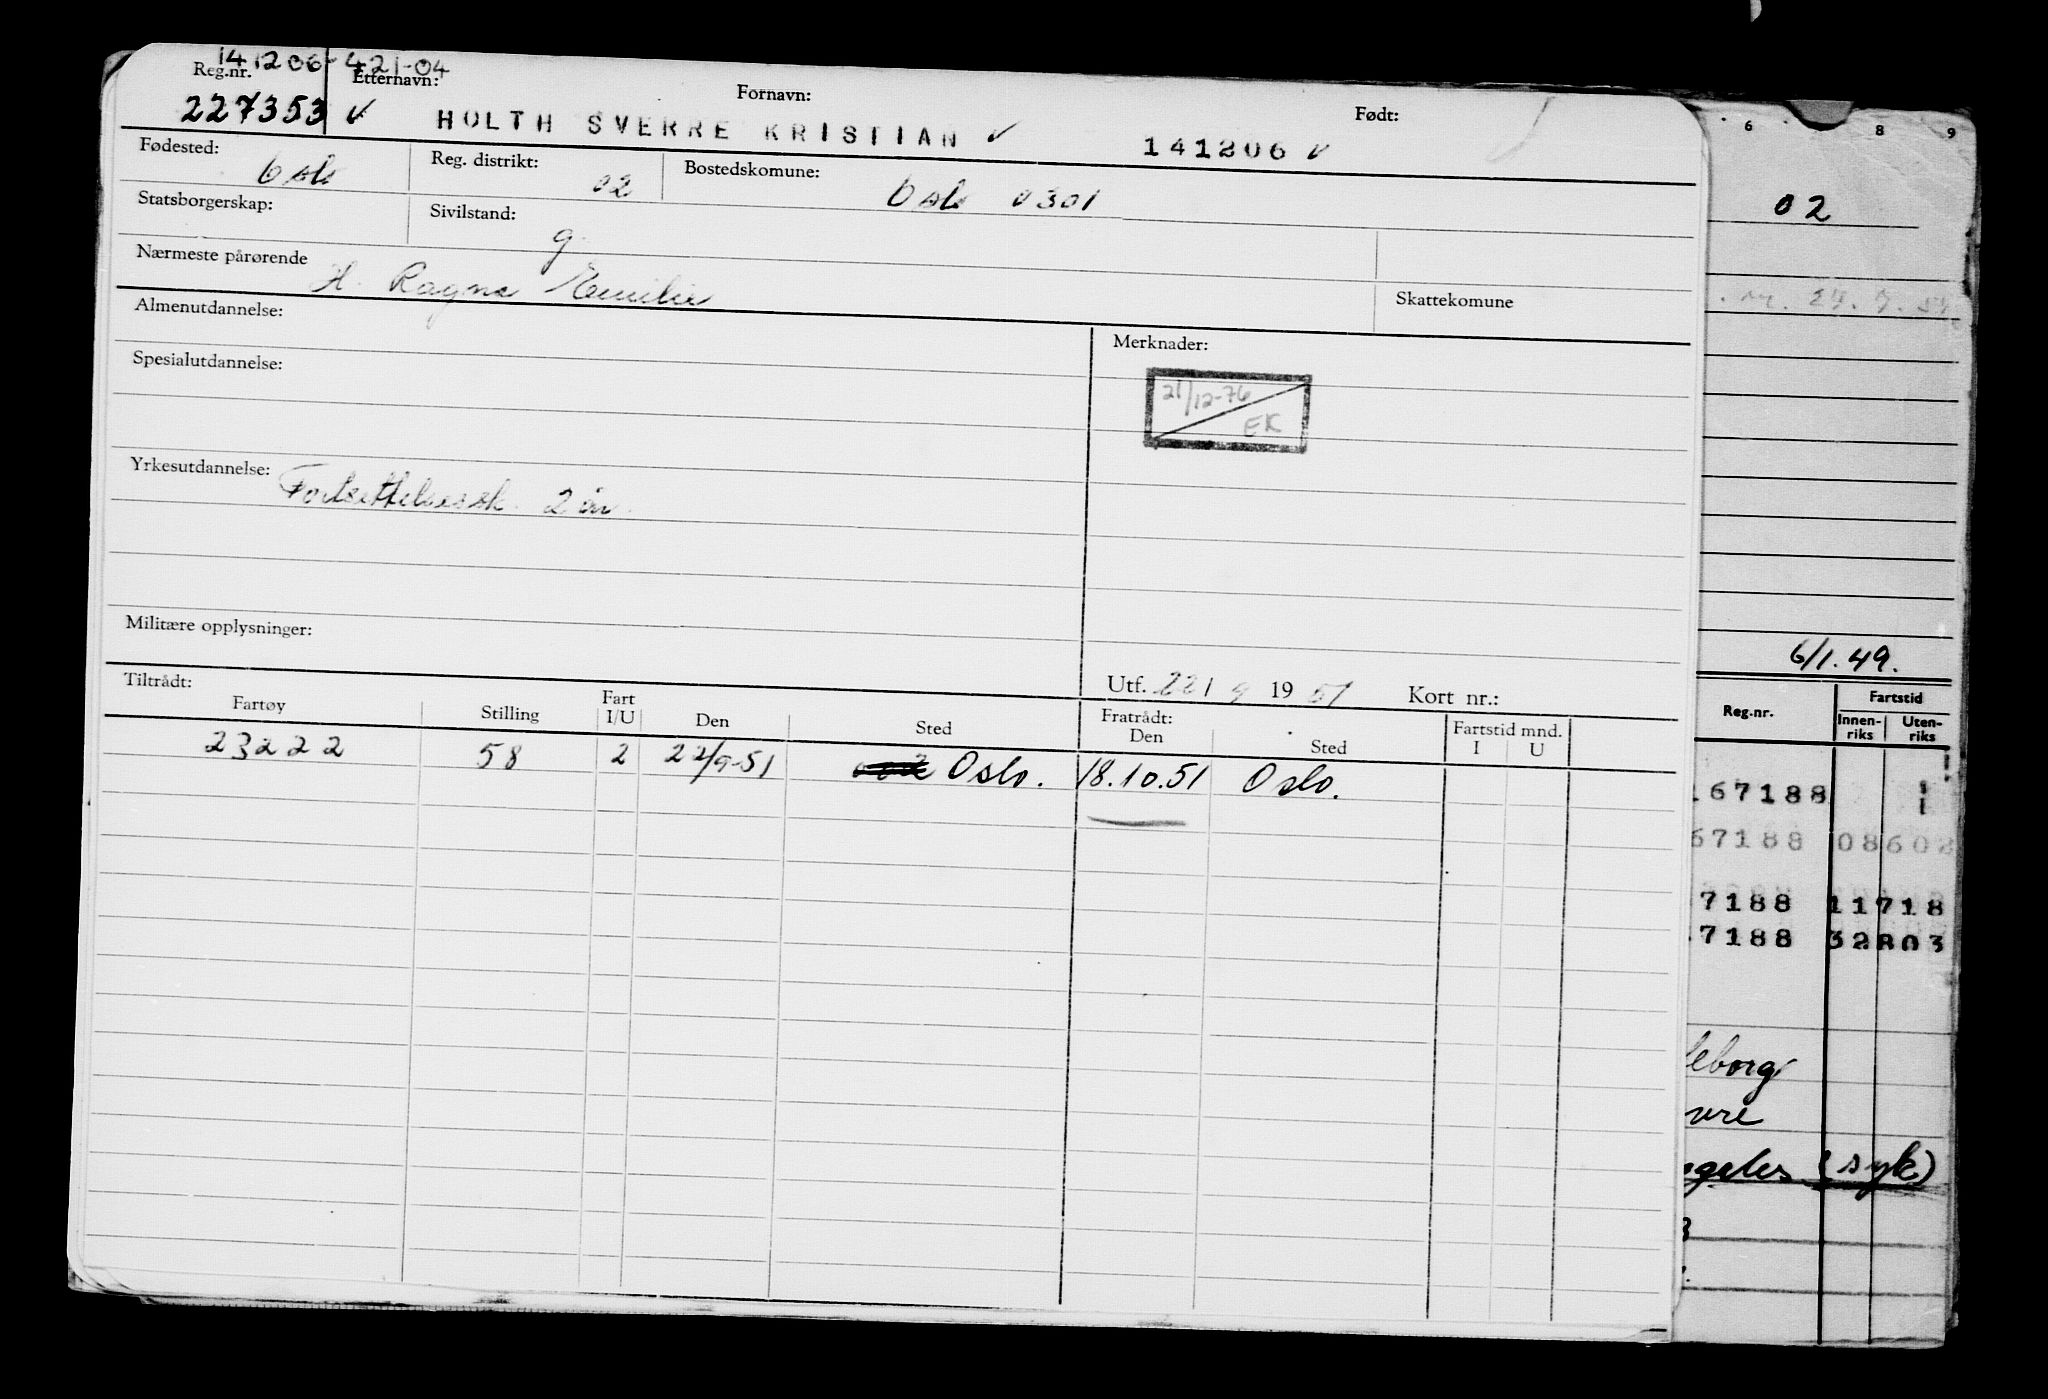 141206-421-04
Reg.nr. Etternavn: Fornavn: Født:
227353 ✓ HOLTH SVERRE KRISTIAN ✓ 141206 ✓
Fødested: Oslo Reg. distrikt: 02 Bostedskomune: Oslo 0301
Statsborgerskap: Sivilstand: g.
Nærmeste pårørende H. Ragna Emilie Skattekomune
Almenutdannelse: Merknader:
Spesialutdannelse: 21/12-76
EK
Yrkesutdannelse: Fortsettelsessk. 2 år.
Militære opplysninger:
Tiltrådt: Utf. 22/ 9 19 51 Kort nr.:
Fartøy Stilling Fart I/U Den Sted Fratrådt: Den Sted Fartstid mnd. I U
23222 58 2 22/9-51 Oslo. 18.10.51 Oslo.
6 8 9
02
6/1.49.
Reg.nr. Fartstid
Innen-riks Uten-riks
167188
67188 08602
7188 11718
7188 32803
leborg
vre
ngeles (syk)